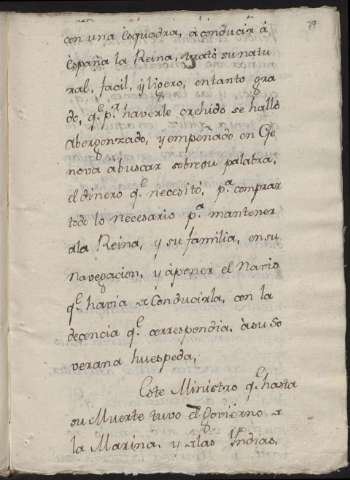 con una esquadra, a conducir á
España la Reina, trató su natu
ral, facil, y ligero, en tanto gra
do, q.^e p.^r haverle crehido se halló
abergonzado, y empeñado en Ge
nova abuscar sobresu palabra,
el dinero q.^e necesitó, p.^a comprar
todo lo necesario p.^a mantener
ala Reina, y su familia, en su
navegacion, y áponer el Navio
q.^e havia à Conducirla, con la
decencia q.^e correspondia, àsu So
verana huespeda,
Este Ministro q.^e hasta
su Muerte tuvo el Govierno a
la Marina, y alas Yndias,